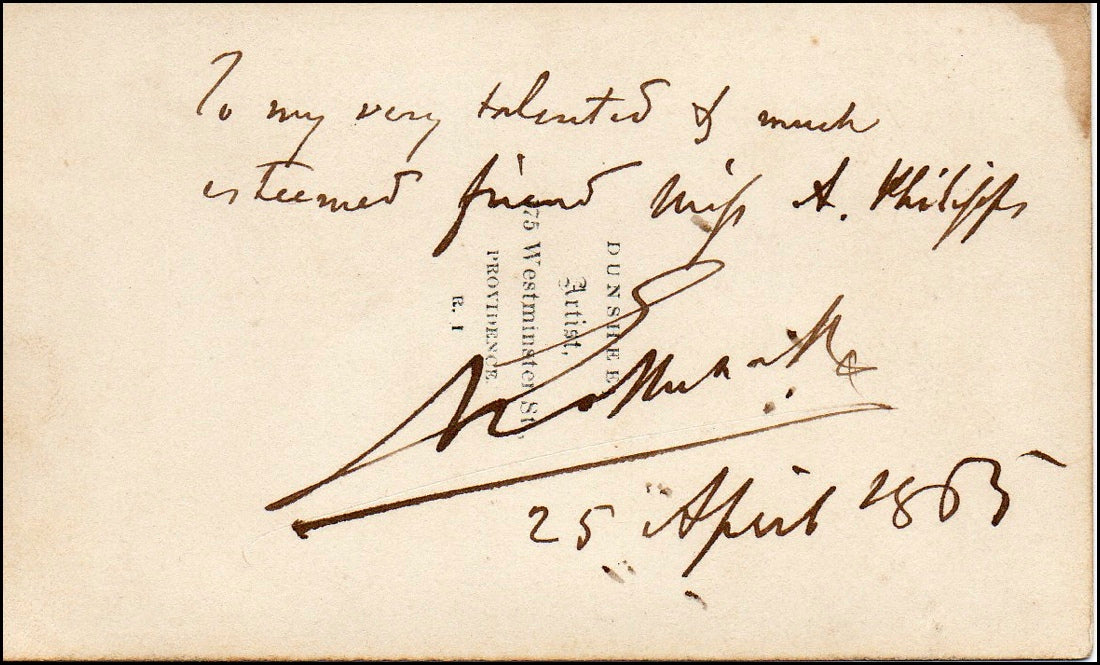 To my very talented & much
esteemed friend Miss A. Philipps
25 April 1865
DUNSHEE
Artist,
75 Westminster St.,
PROVIDENCE
R. I